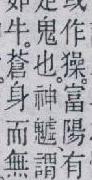 或作𤢖。富陽有
足鬼也。神魖謂
如牛。蒼身而無